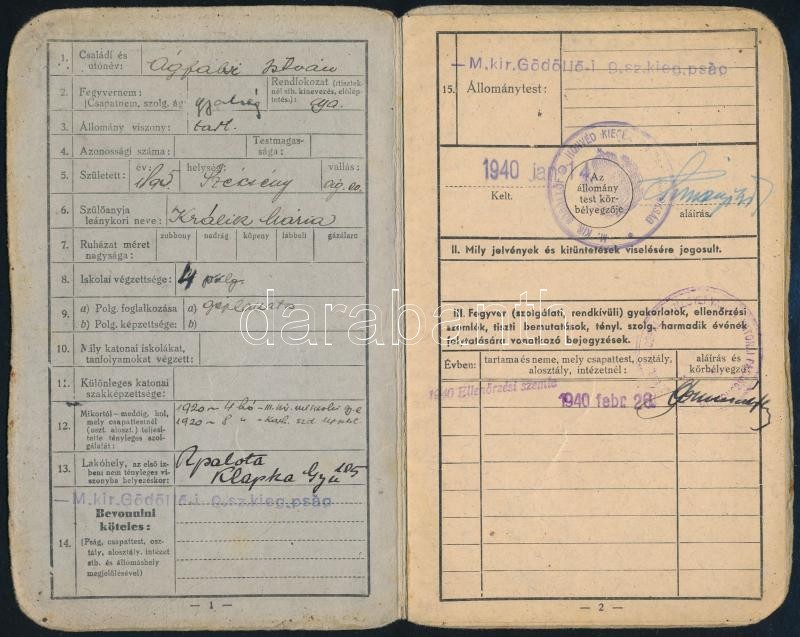 1. Családi és utónév: Ágfalvi István
2. Fegyvernem: gyalság Rendfokozat (tisztek-
(Csapatnem, szolg. ág nél stb. kinevezés, előlép-
tetés:) gya.
3. Állomány viszony: tart.
4. Azonossági száma: Testmagas-
sága:
5. Született: év: helység: Szécsény vallás: ág. ev.
6. Szülőanyja
leánykori neve: Králik Mária
7. Ruházat méret
nagysága: zubbony nadrág köpeny lábbeli gázálarc
8. Iskolai végzettsége: 4 polg.
9. a) Polg. foglalkozása a)
b) Polg. képzettsége: b)
10. Mily katonai iskolákat,
tanfolyamokat végzett:
11. Különleges katonai
szakképzettsége:
12. Mikortól–meddig, hol,
mely csapattestnél
(oszt. aloszt.) teljesí-
tette tényleges szol-
gálatát:
1920 ~ 4 hó
1920 ~ 8 "
13. Lakóhely, az első íz-
beni nem tényleges vi-
szonyba helyezéskor:
Rpalota
Klapka Gyu 105
—M.kir.Gödöllő-i 9.sz.kieg.pság
14. Bevonulni
köteles:
(Pság, csapattest, osz-
tály, alosztály, intézet
stb. és állomáshely
megjelölésével)
— 1 —
—M.kir.Gödöllő-i 9.sz.kieg.pság
15. Állománytest:
1940 jan. 4.
Kelt.
Az
állomány
test kör-
bélyegzője
aláírás.
II. Mily jelvények és kitüntetések viselésére jogosult.
III. Fegyver (szolgálati, rendkívüli) gyakorlatok, ellenőrzési
szemlék, tiszti bemutatások, tényl. szolg. harmadik évének
folytatására vonatkozó bejegyzések.
Évben: tartama és neme, mely csapattest, osztály,
alosztály, intézetnél: aláírás és
körbélyegző:
1940 Ellenőrzési szemle
1940 febr. 28.
— 2 —
darabanth